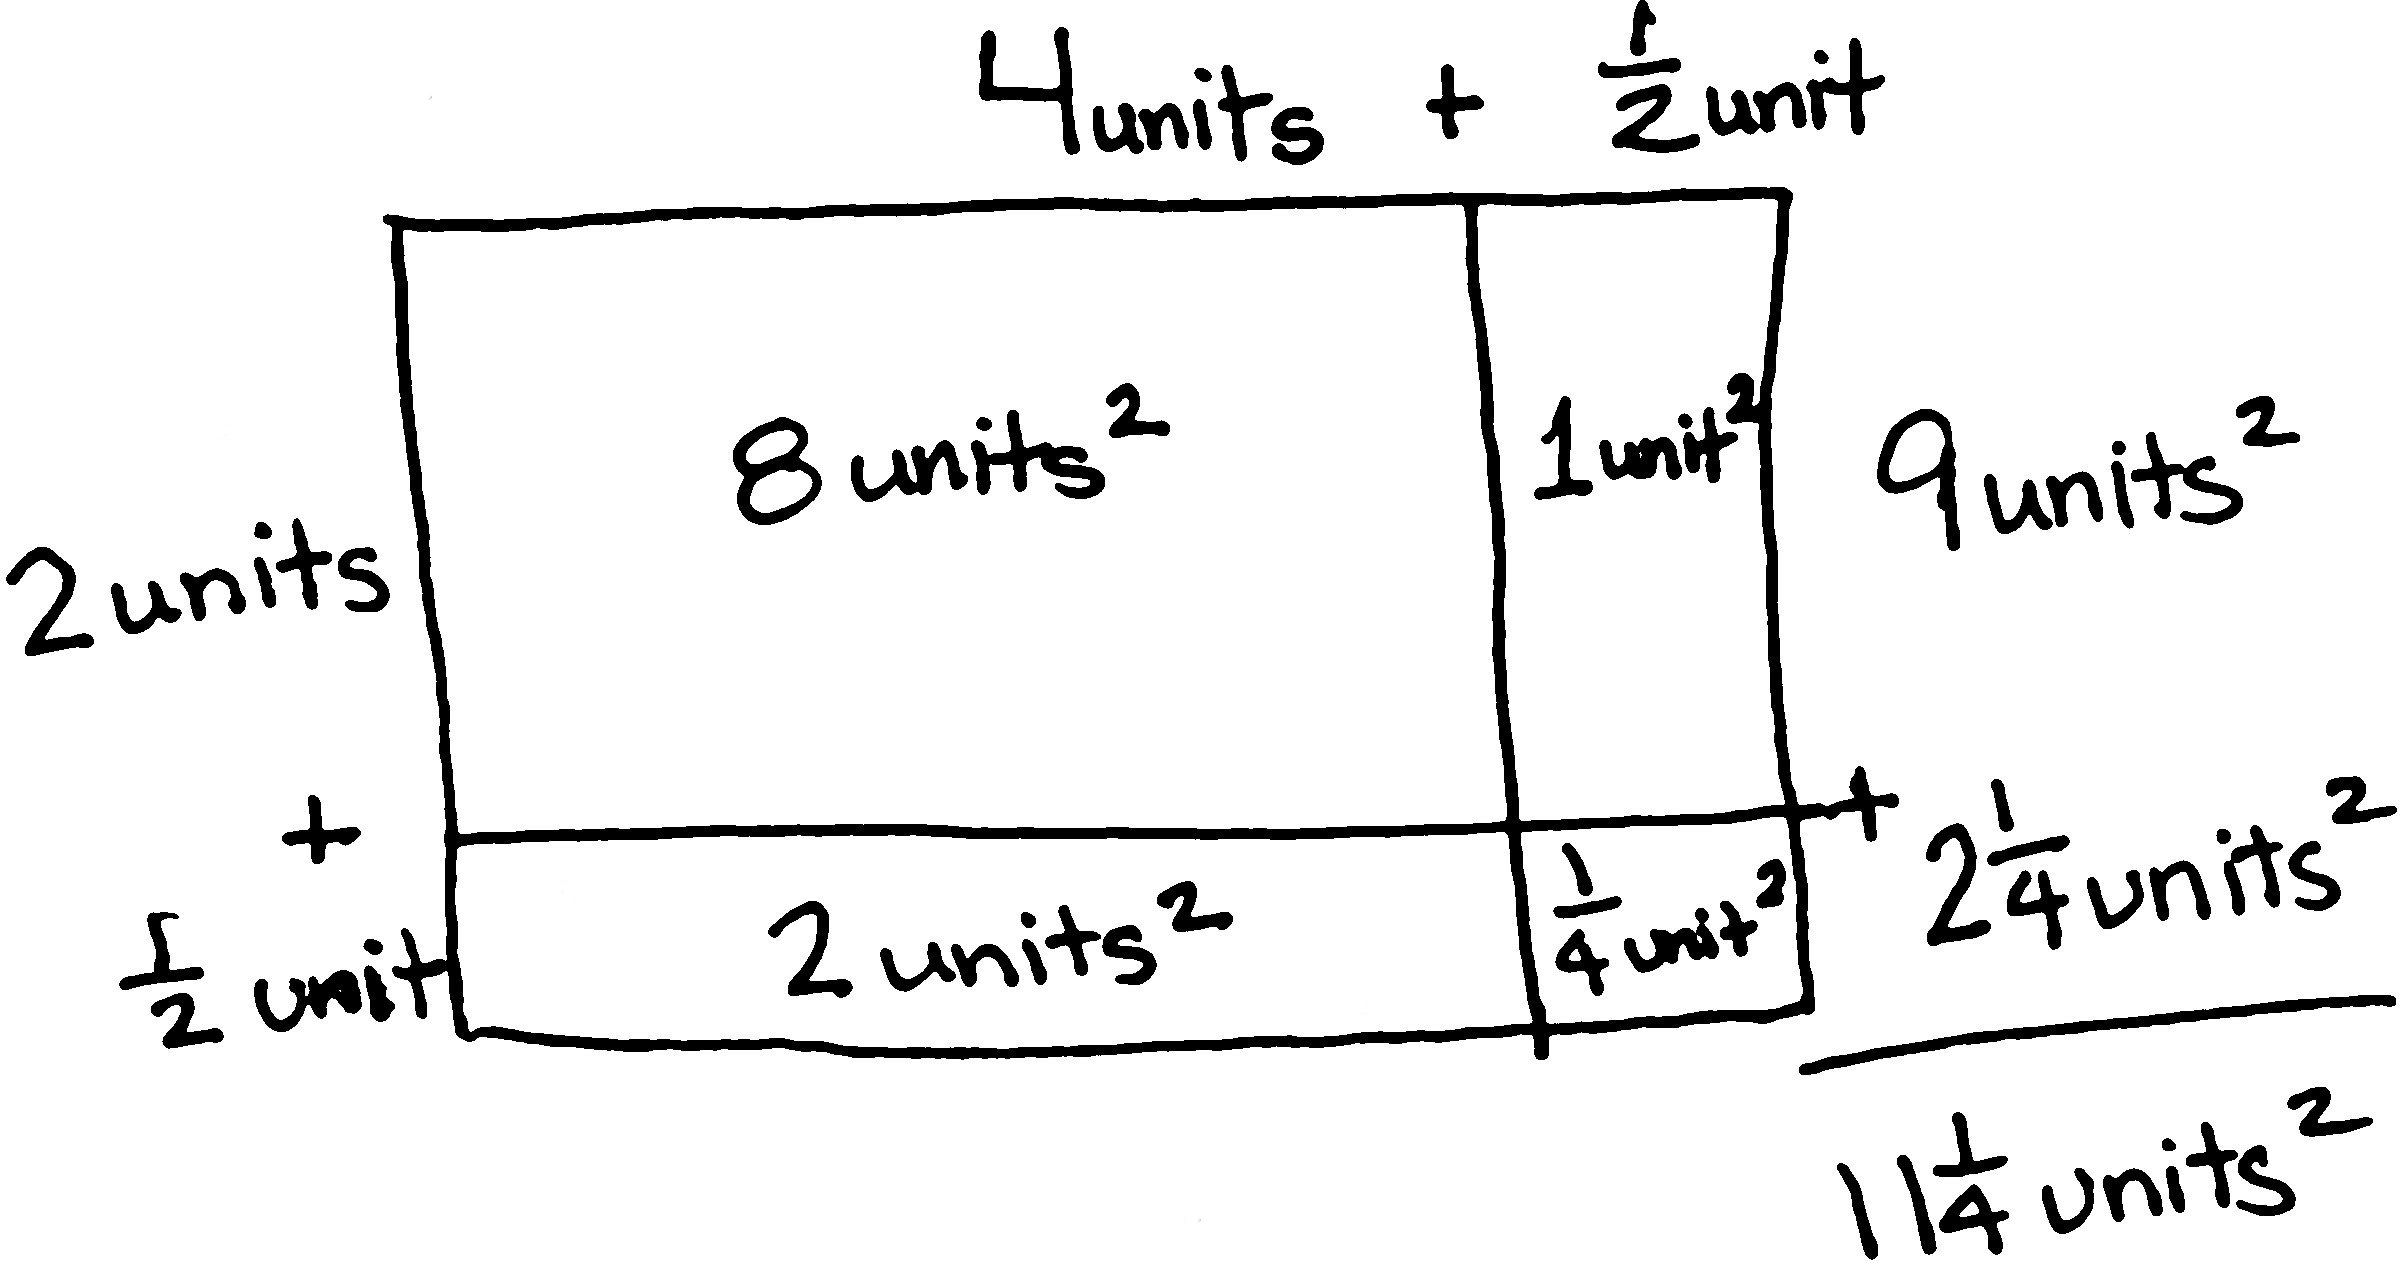 4 units + 1/2 unit
8 units² 1 unit² 9 units²
2 units
+ +
1/2 unit 2 units² 1/4 unit² 2 1/4 units²
11 1/4 units²